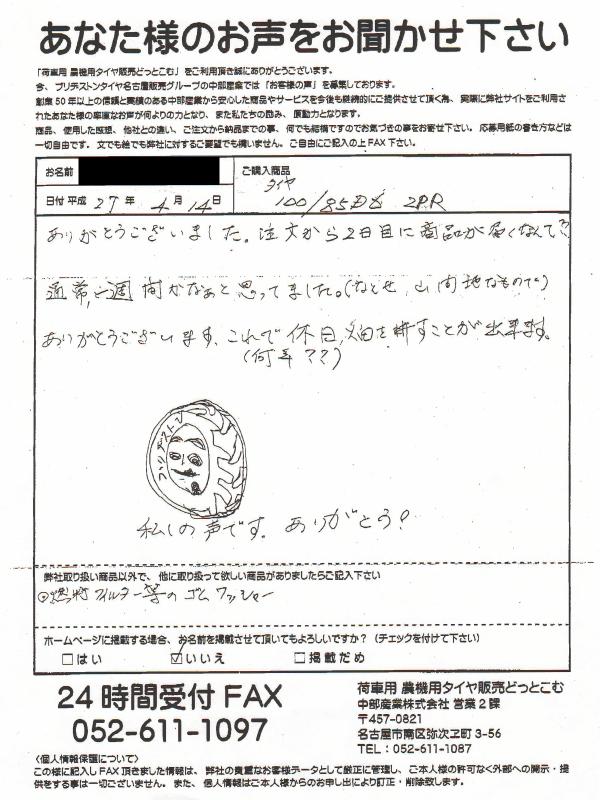 あなた様のお声をお聞かせ下さい
「荷車用 農機用タイヤ販売どっとこむ」をご利用頂き誠にありがとうございます。
今、ブリヂストンタイヤ名古屋販売グループの中部産業では「お客様の声」を募集しております。
創業50年以上の信頼と実績のある中部産業から安心した商品やサービスを今後も継続的にご提供させて頂く為、 実際に弊社サイトをご利用されたあなた様の率直なお声が何よりの力となり、また私たちの励み、 原動力となります。
商品、 使用した感想、 他社との違い、 ご注文から納品までの事、何でも結構ですのでお気づきの事をお寄せ下さい。 応募用紙の書き方などは
一切自由です。 文でも絵でも弊社に対するご要望でも構いません。 ご自由にご記入の上FAX下さい。
お名前
ご購入商品
タイヤ
日付 平成 27 年 4 月 14 日
100/85 2P.R
ありがとうございました。注文から2日目に商品が届くなんて?
通常、一週間かなぁと思ってました。(なんせ、山間地なもので)
ありがとうございます、これで休日、畑を耕すことが出来ます。
(何年??)
ブリヂストン
私しの声です。 ありがとう!
弊社取り扱い商品以外で、 他に取り扱って欲しい商品がありましたらご記入下さい
フィルター等のゴムワッシャー
ホームページに掲載する場合、 お名前を掲載させて頂いてもよろしいですか? (チェックを付けて下さい)
□はい ☑いいえ □掲載だめ
24時間受付 FAX
052-611-1097
荷車用 農機用タイヤ販売どっとこむ
中部産業株式会社 営業2課
〒457-0821
名古屋市南区弥次ヱ町 3-56
TEL : 052-611-1087
〈個人情報保護について〉
この様に記入しFAX頂きました情報は、 弊社の貴重なお客様データとして厳正に管理し、 ご本人様の許可なく外部への開示・提
供をする事は一切ございません。 また、 個人情報はご本人様からのお申し出により訂正・削除致します。